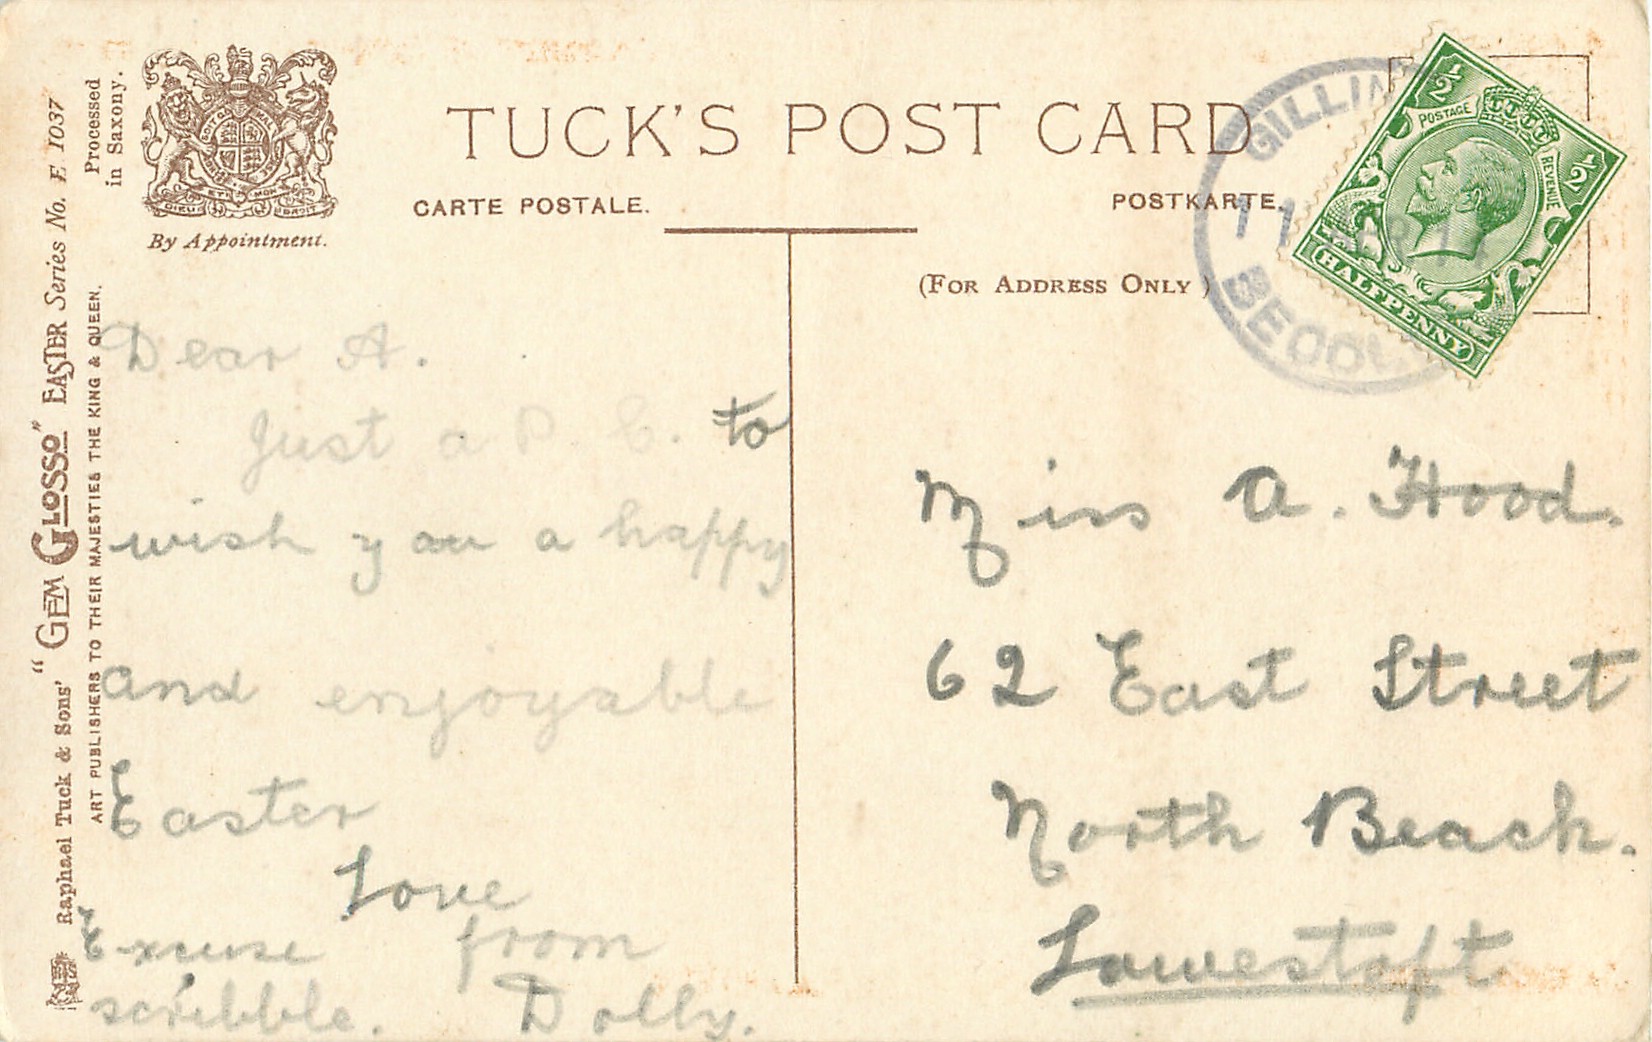 TUCK'S POST CARD
CARTE POSTALE.
POSTKARTE.
(FOR ADDRESS ONLY)
By Appointment.
Processed
in Saxony.
Raphael Tuck & Sons' "GEM GLOSSO" EASTER Series No. E 1037
ART PUBLISHERS TO THEIR MAJESTIES THE KING & QUEEN.
DIEU ET MON DROIT
GILLIN
11
BECC
1/2 1/2
POSTAGE REVENUE
HALFPENNY
Dear A.
Just a P. C. to
wish you a happy
and enjoyable
Easter
Love
from
Dolly.
Excuse
scribble.
Miss A. Hood.
62 East Street
North Beach.
Lowestoft